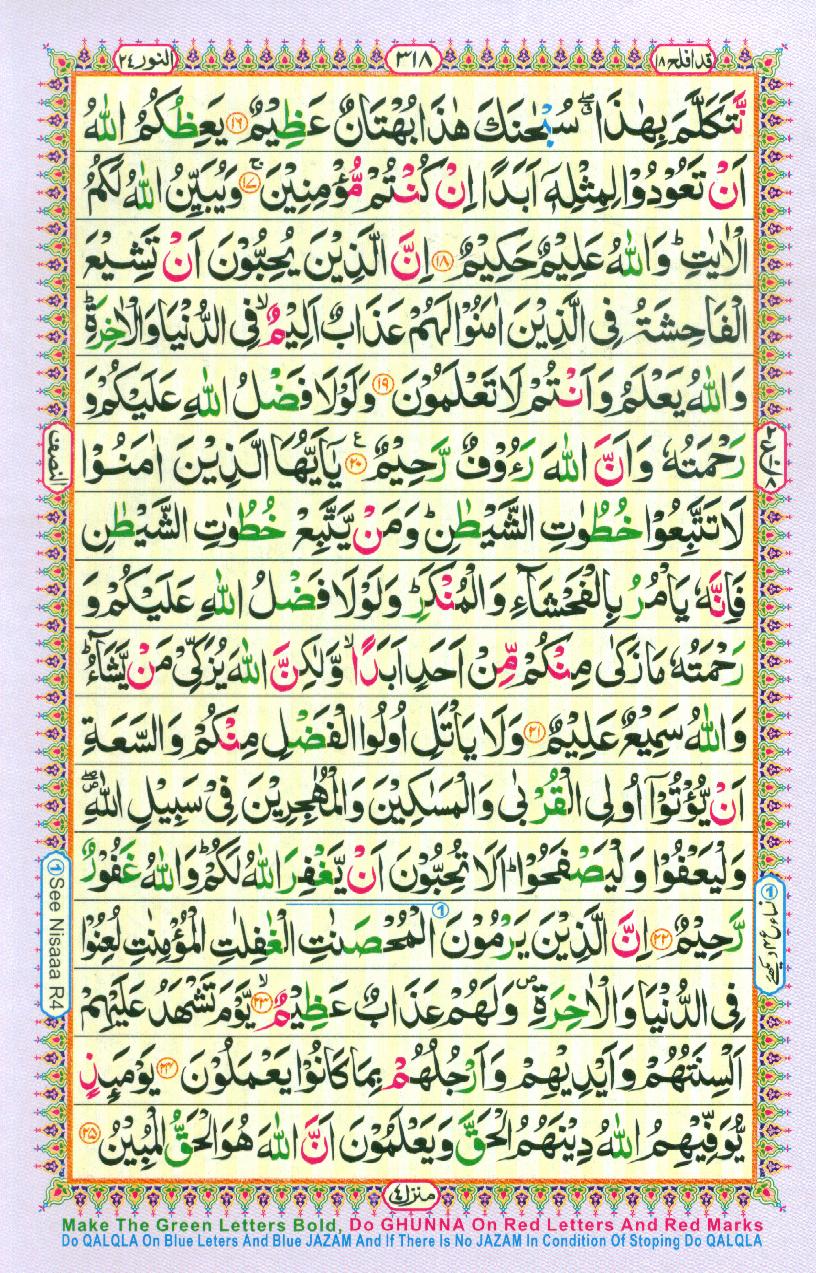 قد افلح ۱۸
۳۱۸
النور ۲٤
نَّتَكَلَّمَ بِهٰذَا ۖ سُبْحٰنَكَ هٰذَا بُهْتَانٌ عَظِيْمٌ ۱۶ يَعِظُكُمُ اللّٰهُ
اَنْ تَعُوْدُوْا لِمِثْلِهٖۤ اَبَدًا اِنْ كُنْتُمْ مُّؤْمِنِيْنَ ۱۷ وَيُبَيِّنُ اللّٰهُ لَكُمُ
الْاٰيٰتِ ؕ وَاللّٰهُ عَلِيْمٌ حَكِيْمٌ ۱۸ اِنَّ الَّذِيْنَ يُحِبُّوْنَ اَنْ تَشِيْعَ
الْفَاحِشَةُ فِى الَّذِيْنَ اٰمَنُوْا لَهُمْ عَذَابٌ اَلِيْمٌ ۙ فِى الدُّنْيَا وَالْاٰخِرَةِ ؕ
وَاللّٰهُ يَعْلَمُ وَاَنْتُمْ لَا تَعْلَمُوْنَ ۱۹ وَلَوْلَا فَضْلُ اللّٰهِ عَلَيْكُمْ وَ
رَحْمَتُهٗ وَاَنَّ اللّٰهَ رَءُوْفٌ رَّحِيْمٌ ۲۰ ع يٰۤاَيُّهَا الَّذِيْنَ اٰمَنُوْا
لَا تَتَّبِعُوْا خُطُوٰتِ الشَّيْطٰنِ ؕ وَمَنْ يَّتَّبِعْ خُطُوٰتِ الشَّيْطٰنِ
فَاِنَّهٗ يَاْمُرُ بِالْفَحْشَآءِ وَالْمُنْكَرِ ؕ وَلَوْلَا فَضْلُ اللّٰهِ عَلَيْكُمْ وَ
رَحْمَتُهٗ مَا زَكٰى مِنْكُمْ مِّنْ اَحَدٍ اَبَدًا ۙ وَّلٰكِنَّ اللّٰهَ يُزَكِّىْ مَنْ يَّشَآءُ ؕ
وَاللّٰهُ سَمِيْعٌ عَلِيْمٌ ۲۱ وَلَا يَاْتَلِ اُولُوا الْفَضْلِ مِنْكُمْ وَالسَّعَةِ
اَنْ يُّؤْتُوْۤا اُولِى الْقُرْبٰى وَالْمَسٰكِيْنَ وَالْمُهٰجِرِيْنَ فِىْ سَبِيْلِ اللّٰهِ ۖ
وَلْيَعْفُوْا وَلْيَصْفَحُوْا ؕ اَلَا تُحِبُّوْنَ اَنْ يَّغْفِرَ اللّٰهُ لَكُمْ ؕ وَاللّٰهُ غَفُوْرٌ
رَّحِيْمٌ ۲۲ اِنَّ الَّذِيْنَ يَرْمُوْنَ ① الْمُحْصَنٰتِ الْغٰفِلٰتِ الْمُؤْمِنٰتِ لُعِنُوْا
فِى الدُّنْيَا وَالْاٰخِرَةِ ۪ وَلَهُمْ عَذَابٌ عَظِيْمٌ ۙ ۲۳ يَّوْمَ تَشْهَدُ عَلَيْهِمْ
اَلْسِنَتُهُمْ وَاَيْدِيْهِمْ وَاَرْجُلُهُمْ بِمَا كَانُوْا يَعْمَلُوْنَ ۲۴ يَوْمَئِذٍ
يُّوَفِّيْهِمُ اللّٰهُ دِيْنَهُمُ الْحَقَّ وَيَعْلَمُوْنَ اَنَّ اللّٰهَ هُوَ الْحَقُّ الْمُبِيْنُ ۲۵
النصف
① See Nisaaa R4
منزل ٤
Make The Green Letters Bold, Do GHUNNA On Red Letters And Red Marks
Do QALQLA On Blue Leters And Blue JAZAM And If There Is No JAZAM In Condition Of Stoping Do QALQLA